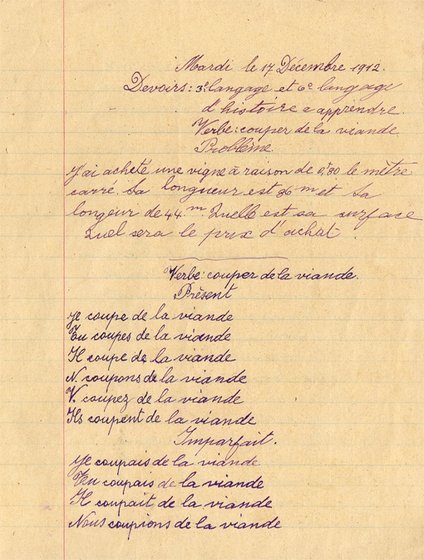 Mardi le 17 Décembre 1912.
Devoirs: 3e langage et 6e langage
d'histoire a apprendre.
Verbe: couper de la viande
Problème
J'ai acheté une vigne à raison de 0,80 le mètre
carré. Sa longueur est 86m et sa
longeur de 44m. Quelle est sa surface
Quel sera le prix d'achat.
Verbe: couper de la viande.
Présent
Je coupe de la viande
Tu coupes de la viande
Il coupe de la viande
N. coupons de la viande
V. coupez de la viande
Ils coupent de la viande
Imparfait.
Je coupais de la viande
Tu coupais de la viande
Il coupait de la viande
Nous coupions de la viande